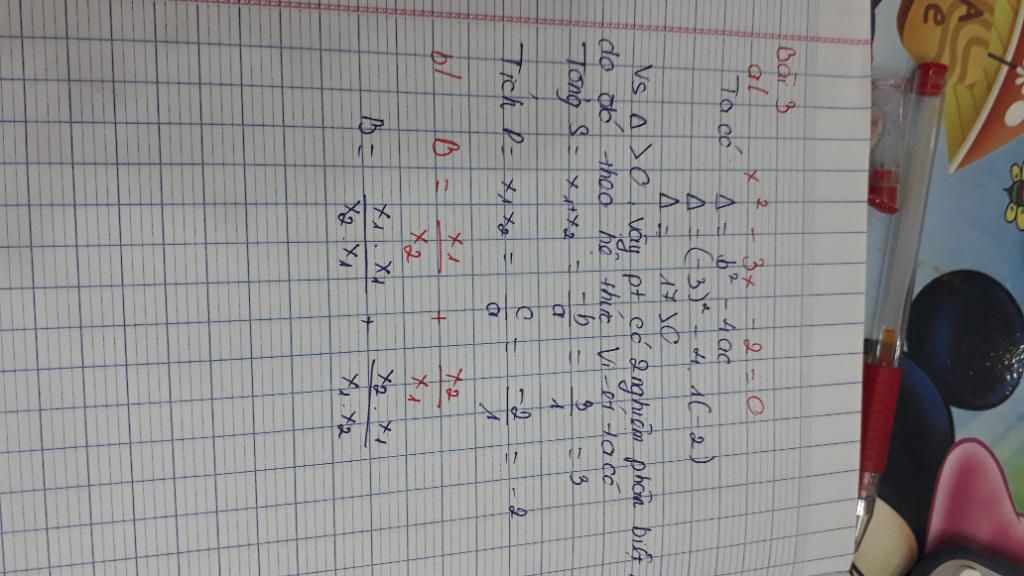 Bài 3
a/ x² - 3x - 2 = 0
Ta có Δ = b² - 4ac
Δ = (-3)² - 4.1(-2)
Δ = 17 > 0
Vs Δ > 0, vậy pt có 2 nghiệm phân biệt,
do đó theo hệ thức Vi-ét ta có
Tổng S = x1+x2 = -b/a = 3/1 = 3
Tích P = x1x2 = c/a = -2/1 = -2
b/ B = x1/x2 + x2/x1
B = x1.x1/x2.x1 + x2.x1/x1.x2
A
e